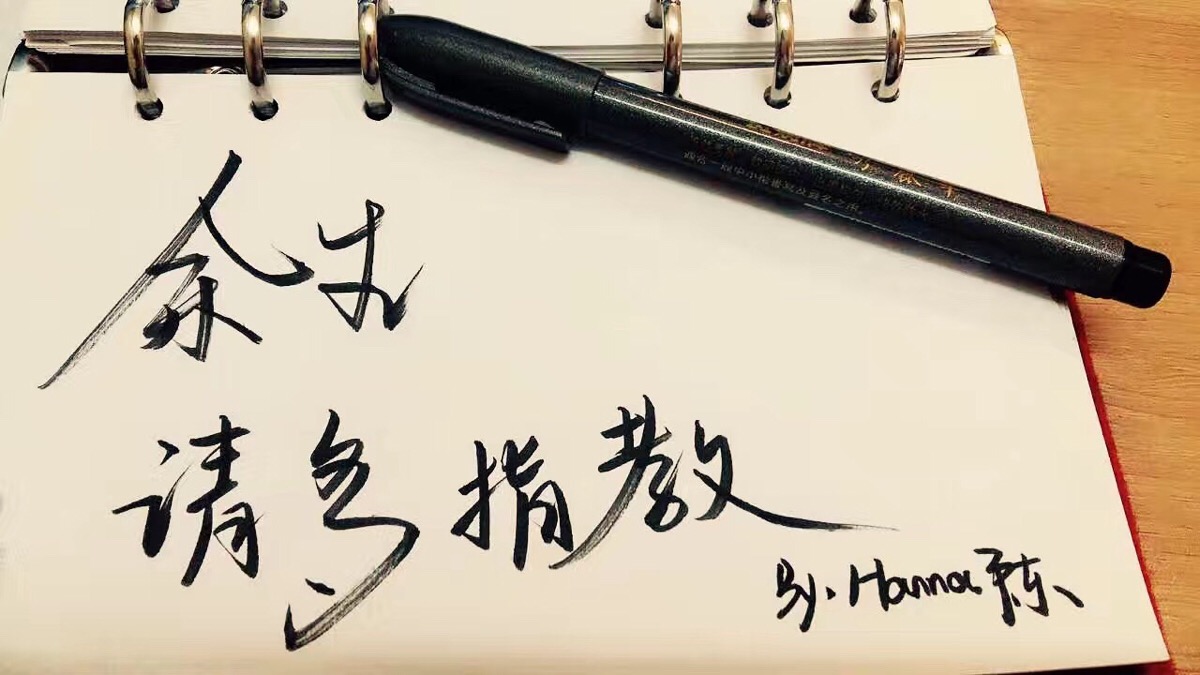 余生
请多指教
By. Hanna陈